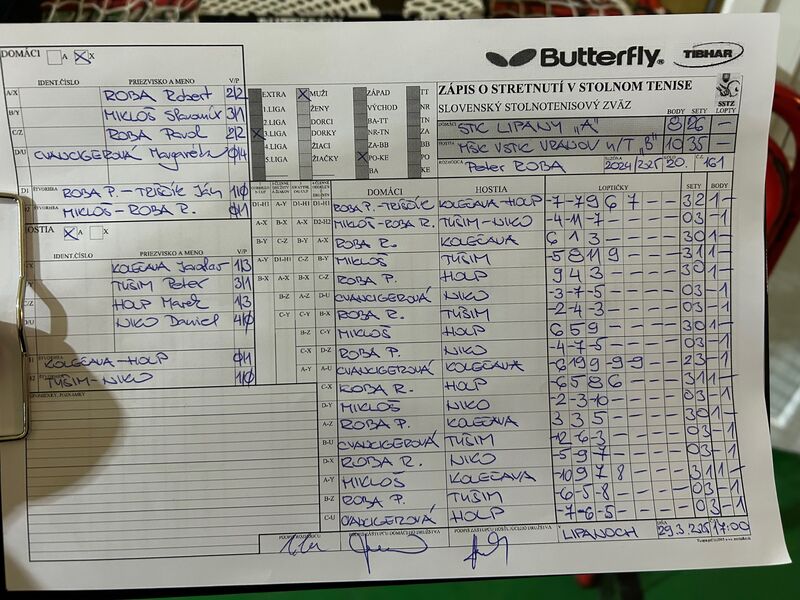 DOMÁCI A X
Butterfly
TIBHAR
IDENT.ČÍSLO PRIEZVISKO A MENO V/P
A/X ROBA Robert 2/2
B/Y MIKLOŠ Slavomír 3/1
C/Z ROBA Pavol 2/2
D/U CVANCIGEROVÁ Margaréta 0/4
D1 ŠTVORHRA ROBA P. - TRIŠČÍK Ján 1/0
MIKLOŠ - ROBA R. 0/1
EXTRA MUŽI ZÁPAD TT
1.LIGA ŽENY VÝCHOD NR
2.LIGA DORCI BA-TT TN
3.LIGA DORKY NR-TN ZA
4.LIGA ŽIACI ZA-BB BB
5.LIGA ŽIAČKY PO-KE PO
BA KE
ZÁPIS O STRETNUTÍ V STOLNOM TENISE
SLOVENSKÝ STOLNOTENISOVÝ ZVÄZ
SSTZ
BODY SETY LOPTY
DOMÁCI STK LIPANY „A" 8 26 -
HOSTIA MŠK VSTK VRANOV n/T „B" 10 35 -
ROZHODCA Peter ROBA 2024/2025 20. č.161
HOSTIA A X
IDENT.ČÍSLO PRIEZVISKO A MENO V/P
KOLEČAVA Jaroslav 1/3
TUŠIM Peter 3/1
HOLP Marek 1/3
NIKO Daniel 4/0
ŠTVORHRA KOLEČAVA - HOLP 0/1
ŠTVORHRA TUŠIM - NIKO 1/0
SPRIPOMIENKY, POZNÁMKY
DOMÁCI HOSTIA LOPTIČKY SETY BODY
D1-H1 ROBA P.-TRIŠČÍK KOLEČAVA-HOLP -7 -7 9 6 7 - - 3 2 1 -
D2-H2 MIKLOŠ-ROBA R. TUŠIM-NIKO -4 -11 -7 - - - - 0 3 - 1
A-X ROBA R. KOLEČAVA 6 1 3 - - - - 3 0 1 -
B-Y MIKLOŠ TUŠIM -5 8 11 9 - - - 3 1 1 -
C-Z ROBA P. HOLP 9 4 3 - - - - 3 0 1 -
D-U CVANCIGEROVÁ NIKO -3 -7 -5 - - - - 0 3 - 1
B-X ROBA R. TUŠIM -2 -4 -3 - - - - 0 3 - 1
B-Z MIKLOŠ HOLP 6 5 9 - - - - 3 0 1 -
D-Z ROBA P. NIKO -4 -7 -5 - - - - 0 3 - 1
A-U CVANCIGEROVÁ KOLEČAVA -6 19 9 -9 -9 - - 2 3 - 1
C-X ROBA R. HOLP -6 5 8 6 - - - 3 1 1 -
D-Y MIKLOŠ NIKO -2 -3 -10 - - - - 0 3 - 1
A-Z ROBA P. KOLEČAVA 3 3 5 - - - - 3 0 1 -
B-U CVANCIGEROVÁ TUŠIM -12 -6 -3 - - - - 0 3 - 1
D-X ROBA R. NIKO -5 -9 -7 - - - - 0 3 - 1
A-Y MIKLOŠ KOLEČAVA -10 9 7 8 - - - 3 1 1 -
B-Z ROBA P. TUŠIM -6 -5 -8 - - - - 0 3 - 1
C-U CVANCIGEROVÁ HOLP -7 -6 -5 - - - - 0 3 - 1
PODPIS ROZHODCU PODPIS ZÁSTUPCU DOMÁCEHO DRUŽSTVA PODPIS ZÁSTUPCU HOSŤUJÚCEHO DRUŽSTVA V LIPANOCH DŇA 29.3.2025 17:00